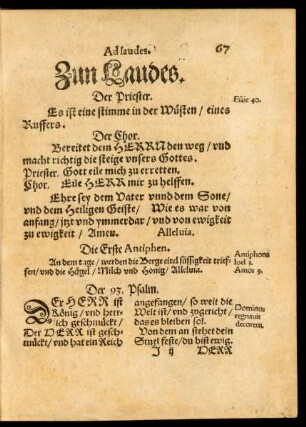 Ad laudes. 67
Zun Laudes.
Der Priester.
Es ist eine stimme in der Wüsten / eines
Ruffers.
Esaie 40.
Der Chor.
Bereitet dem HERRN den weg / vnd
macht richtig die steige vnsers Gottes.
Priester. Gott eile mich zu erretten.
Chor. Eile HERR mir zu helffen.
Ehre sey dem Vater vnnd dem Sone /
vnd dem Heiligen Geiste / Wie es war von
anfang / jtzt vnd ymmerdar / vnd von ewigkeit
zu ewigkeit / Amen. Alleluia.
Die Erste Antiphen.
An dem tage / werden die Berge eitel süssigkeit trief-
fen / vnd die Hügel / Milch vnd Honig / Alleluia.
Antiphona
Ioel 2.
Amos 9.
Der 93. Psalm.
DEr HERR ist
König / vnd herr-
lich geschmückt /
Der HERR ist gesch-
mückt / vnd hat ein Reich
angefangen / so weit die
Welt ist / vnd zugericht /
das es bleiben sol.
Von dem an stehet dein
Stuel feste / du bist ewig.
Dominus
regnauit
decorem.
I ij HERR